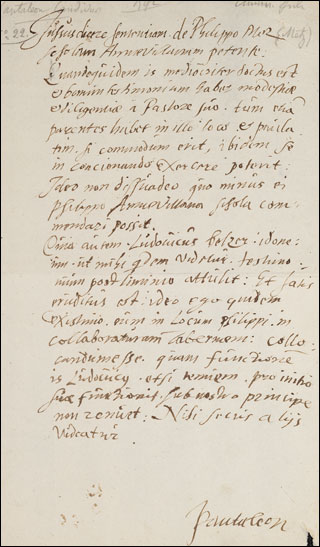 Jussus dicere sententiam de Philippo
scholam Annævillanam petente:
Quandoquidem is mediocriter doctus est
et bonum testimonium habet modestiæ
et diligentiæ à Pastore suo. tum etiam
parentes habet in illo loco et
tim, si commodum erit, ibidem se
in concionando exercere poterit.
Ideo non dissuadeo quo minus ei
Philippo Annævillana schola com-
mendari possit.
Cum autem Ludovicus Belzer idone-
um, ut mihi quidem videtur, testimo-
nium attulit: Et satis
eruditus est: ideo ego quidem
existimo, eum in locum Philippi, in
collaboraturam: collo-
candum esse. quam functionem
is Ludovicus, etsi pro initio
suæ functionis, sub nostro principe
non Nisi secus alijs
videatur.
Pantaleon